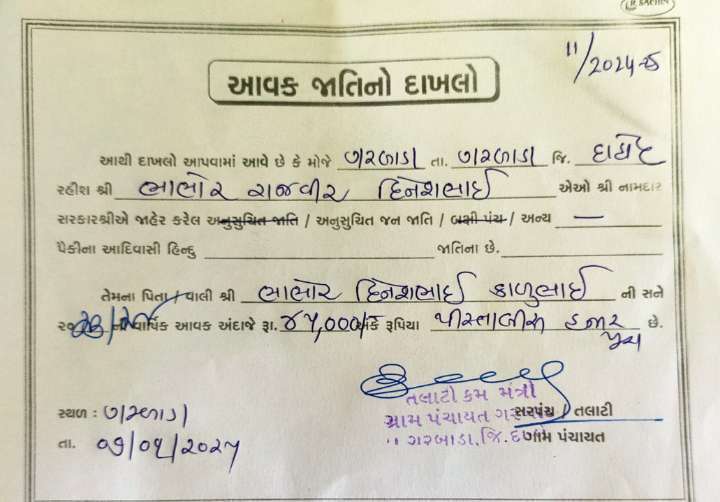 11/2024-25
આવક જાતિનો દાખલો
આથી દાખલો આપવામાં આવે છે કે મોજે ગરબાડા તા. ગરબાડા જિ. દાહોદ
રહીશ શ્રી ભાભોર રાજવીર દિનેશભાઈ એઓ શ્રી નામદાર
સરકારશ્રીએ જાહેર કરેલ અનુસુચિત જાતિ / અનુસુચિત જન જાતિ / બક્ષી પંચ / અન્ય —
પૈકીના આદિવાસી હિન્દુ જાતિના છે.
તેમના પિતા / વાલી શ્રી ભાભોર દિનેશભાઈ કાળુભાઈ ની સને
ની વાર્ષિક આવક અંદાજે રૂા. ૪૫,૦૦૦/- અંકે રૂપિયા પીસ્તાલીસ હજાર છે.
પુરા
સ્થળ : ગરબાડા
તલાટી કમ મંત્રી
ગ્રામ પંચાયત સરપંચ / તલાટી
તા. ૦૭/૦૧/૨૦૨૫ ગરબાડા, જિ. ગામ પંચાયત